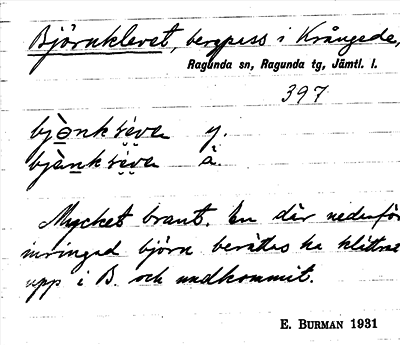 Björnklevet, bergpass i Krångede,
Ragunda sn, Ragunda tg, Jämtl. l.
397
y.
å
Mycket brant. En där nedanför
inringad björn berättas ha klättrat
upp i B. och undkommit.
E. BURMAN 1931